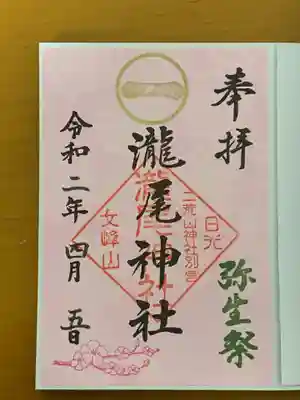 奉拝
弥生祭
一
瀧尾神社
日光
二荒山神社別宮
瀧尾神社
女峰山
令和二年四月五日